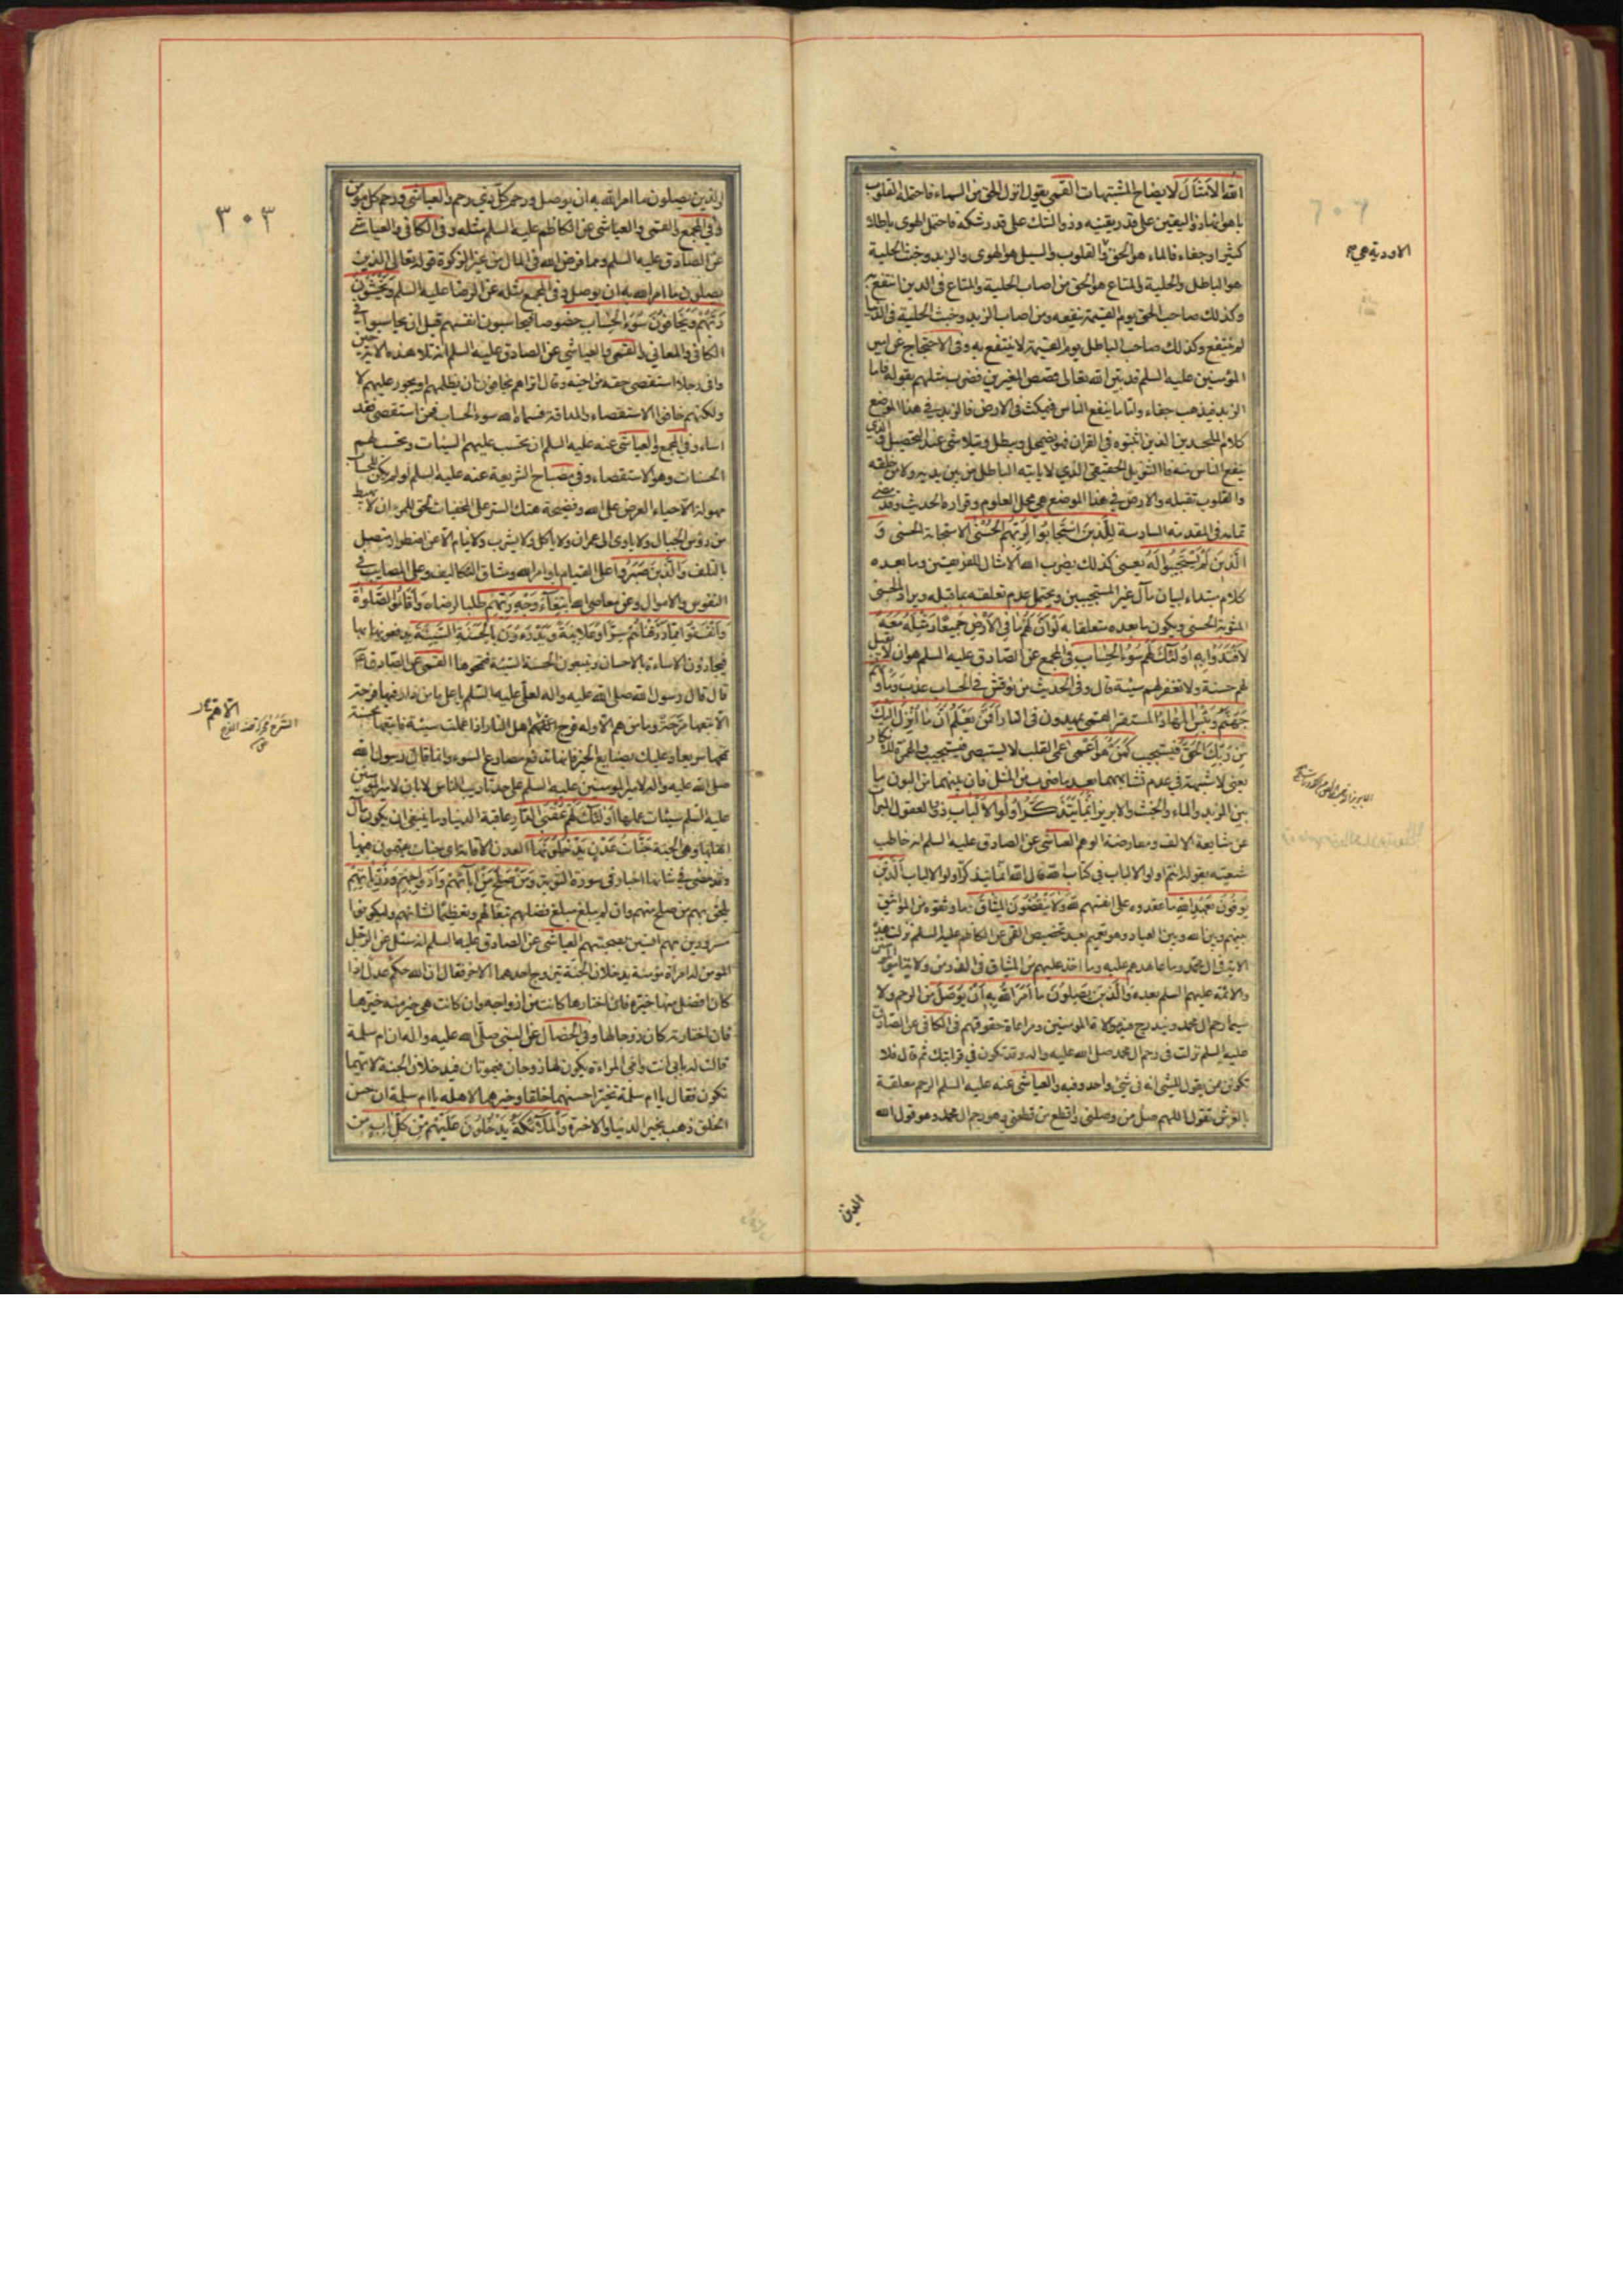 الله الامثال لايضاح المشتبهات القمى يقول انزل الحق من السماء فاحتمله القلوب
باهوائها ذو اليقين على قدر يقينه وذو الشك على قدر شكه فاحتمل الهوى باطلا
كثيرا وجفاء فالماء هو الحق والقلوب والسيل هو الهوى والزبد وخبث الحلية
هو الباطل والحلية والمتاع هو الحق من اصاب الحلية والمتاع فى الدين انتفع به
وكذلك صاحب الحق يوم القيمة ينفعه ومن اصاب الزبد وخبث الحلية فى الدنيا
لم ينتفع وكذلك صاحب الباطل يوم القيمة لا ينتفع به وفى الاحتجاج عن امير
المؤمنين عليه السلم قد بين الله تعالى قصص المغيرين فضرب مثلهم بقوله فاما
الزبد فيذهب جفاء واما ما ينفع الناس فيمكث فى الارض فالزبد فى هذا الموضع
كلام الملحدين الذين اثبتوه فى القران فهو يضمحل ويبطل ويتلاشى عند التحصيل والذى
ينفع الناس منه فالتنزيل الحقيقى الذي لا ياتيه الباطل من بين يديه ولا من خلفه
والقلوب تقبله والارض فى هذا الموضع هى محل العلوم وقراره الحديث وقد مضى
تمامه فى المقدمة السادسة للذين استجابوا لربهم الحسنى الاستجابة الحسنى و
الذين لم يستجيبوا له يعنى كذلك يضرب الله الامثال للفريقين وما بعده
كلام مبتداء لبيان مآل غير المستجيبين ويحتمل عدم تعلقه بما قبله ويراد بالحسنى
المثوبة الحسنى ويكون ما بعده متعلقا به لو ان لهم ما فى الارض جميعا ومثله معه
لافتدوا به اولئك لهم سوء الحساب فى المجمع عن الصادق عليه السلم هو ان لا يقبل
لهم حسنة ولا تغفر لهم سيئة قال وفى الحديث من نوقش فى الحساب عذب ومأويهم
جهنم وبئس المهاد المستقر القمى يمهدون فى النار افمن يعلم انما انزل اليك
من ربك الحق فيستجيب كمن هو اعمى اعمى القلب لا يستبصر فيستجيب والهمزة للانكار
يعنى لا شبهة فى عدم تشابههما بعد ما ضرب من المثل فان بينهما من البون ما
بين الزبد والماء والخبث والابريز انما يتذكر اولوا الالباب ذوو العقول المبراة
عن مشايعة الالف ومعارضة الوهم العياشى عن الصادق عليه السلم انه خاطب
شيعته بقوله انتم اولو الالباب فى كتاب الله قال الله انما يتذكر اولو الالباب الذين
يوفون بعهد الله ما عقدوه على انفسهم لله ولا ينقضون الميثاق ما وثقوه من المواثيق
بينهم وبين الله وبين العباد وهو تعميم بعد تخصيص القمى عن الكاظم عليه السلم نزلت هذه
الاية فى ال محمد وما عاهدهم عليه وما اخذ عليهم من الميثاق فى الذر من ولاية امير المؤمنين
والائمة عليهم السلم بعده والذين يصلون ما امر الله به ان يوصل من الرحم ولا
سيما رحم ال محمد ويندرج فيه موالاة المؤمنين ومراعاة حقوقهم فى الكافى عن الصادق
عليه السلم نزلت فى رحم ال محمد صلى الله عليه واله وقد تكون فى قرابتك ثم قال فلا
تكونن ممن يقول للشئ انه فى شئ واحد وفيه والعياشى عنه عليه السلم الرحم معلقة
بالعرش تقول اللهم صل من وصلنى واقطع من قطعنى وهو رحم ال محمد وهو قول الله
الاودية هى
الذين
٣٠٣
والذين يصلون ما امر الله به ان يوصل ورحم كل ذي رحم والعياشى ورحم كل مؤمن
وفى المجمع والقمى والعياشى عن الكاظم عليه السلم مثله وفى الكافى والعياشى
عن الصادق عليه السلم ومما فرض الله فى المال من غير الزكوة قوله تعالى الذين
يصلون ما امر الله به ان يوصل وفى المجمع مثله عن الرضا عليه السلم ويخشون
ربهم ويخافون سوء الحساب خصوصا فيحاسبون انفسهم قبل ان يحاسبوا فى
الكافى والمعانى والقمى والعياشى عن الصادق عليه السلم انه تلا هذه الاية حين
وافى رجلا استقصى حقه من اخيه وقال اتراهم يخافون ان يظلمهم او يجور عليهم لا
ولكنهم خافوا الاستقصاء والمداقة فسماه الله سوء الحساب فمن استقصى فقد
اساء وفى المجمع والعياشى عنه عليه السلم ان تحسب عليهم السيئات وتحسب لهم
الحسنات وهو الاستقصاء وفى مصباح الشريعة عنه عليه السلم لو لم يكن للحساب
مهولة الا حياء العرض على الله وفضيحة هتك الستر على المخفيات لحق للمرء ان لا يهبط
من رؤس الجبال ولا ياوى الى عمران ولا ياكل ولا يشرب ولا ينام الا عن اضطرار متصل
بالتلف والذين صبروا على القيام باوامر الله ومشاق التكاليف وعلى المصايب فى
النفوس والاموال وعن معاصى الله ابتغاء وجه ربهم طلبا لرضاه واقاموا الصلوة
وانفقوا مما رزقناهم سرا وعلانية ويدرءون بالحسنة السيئة يدفعونها بها
فيجازون الاساءة بالاحسان ويتبعون الحسنة السيئة فتمحوها القمى عن الصادق
قال قال رسول الله صلى الله عليه واله لعلى عليه السلم يا على ما من دار فيها فرحة
الا تبعها ترحة وما من هم الا وله فرج الا هم اهل النار اذا عملت سيئة فاتبعها بحسنة
تمحها سريعا وعليك بصنايع الخير فانها تدفع مصارع السوء وانما قال رسول الله
صلى الله عليه واله لامير المؤمنين عليه السلم على حد تاديب الناس لا بان لامير المؤمنين
عليه السلم سيئات عملها اولئك لهم عقبى الدار عاقبة الدنيا وما ينبغى ان يكون مآل
اهلها وهى الجنة جنات عدن يدخلونها العدن الاقامة اى جنات يقيمون فيها
وقد مضى فى شانها اخبار فى سورة التوبة ومن صلح من آبائهم وازواجهم وذرياتهم
يلحق بهم من صلح منهم وان لم يبلغ مبلغ فضلهم تبعا لهم وتعظيما لشانهم وليكونوا
مسرورين بهم انسين بصحبتهم العياشى عن الصادق عليه السلم انه سئل عن الرجل
المؤمن له امراة مؤمنة يدخلان الجنة يتزوج احدهما الاخر فقال ان الله حكم عدل اذا
كان افضل منها خيره فان اختارها كانت من ازواجه وان كانت هى خير منه خيرها
فان اختارته كان زوجا لها وفى الخصال عن النبى صلى الله عليه واله ان ام سلمة
قالت له بابى انت وامى المراة يكون لها زوجان فيموتان فيدخلان الجنة لايهما
تكون فقال يا ام سلمة تخير احسنهما خلقا وخيرهما لاهله يا ام سلمة ان حسن
الخلق ذهب بخير الدنيا والاخرة والملائكة يدخلون عليهم من كل باب من